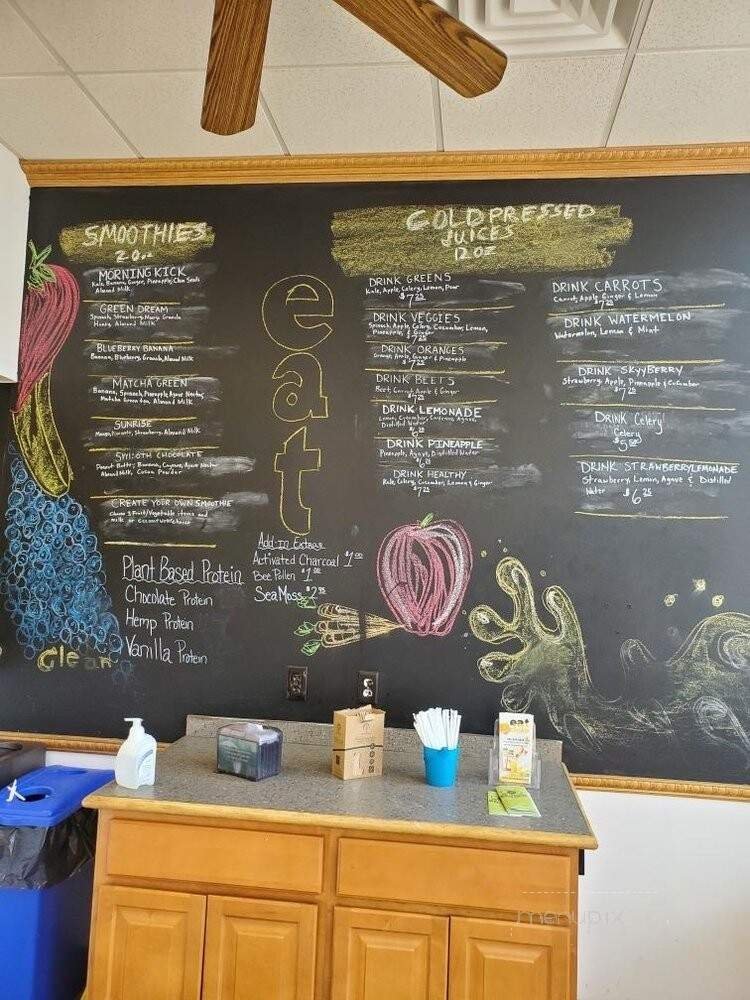 SMOOTHIES
20oz
MORNING KICK
Kale, Banana, Ginger, Pineapple, Chia Seeds
Almond Milk
GREEN DREAM
Spinach, Strawberry, Mango, Granola
Honey, Almond Milk
BLUEBERRY BANANA
Banana, Blueberry, Granola, Almond Milk
MATCHA GREEN
Banana, Spinach, Pineapple, Agave Nectar,
Matcha Green tea, Almond Milk
SUNRISE
Mango, Strawberry, Almond Milk
SMOOTH CHOCOLATE
Peanut Butter, Banana, Agave Nectar
Almond Milk, Cocoa Powder
CREATE YOUR OWN SMOOTHIE
Choose 3 Fruit/Vegetable items and
milk or Coconut Water choice
Plant Based Protein
Chocolate Protein
Hemp Protein
Vanilla Protein
Clean
eat
Add-In Extras
Activated Charcoal $1.00
Bee Pollen $1.00
Sea Moss
COLD PRESSED
JUICES
12 OZ
DRINK GREENS
Kale, Apple, Celery, Lemon, Pear
$7.25
DRINK VEGGIES
Spinach, Apple, Celery, Cucumber, Lemon,
Pineapple, & Ginger
$7.25
DRINK ORANGES
Orange, Apple, Ginger & Pineapple
$7.25
DRINK BEETS
Beet, Carrot, Apple & Ginger
$7.25
DRINK LEMONADE
Lemon, Cucumber, Cayenne, Agave,
Distilled Water
DRINK PINEAPPLE
Pineapple, Agave, Distilled Water
$6.25
DRINK HEALTHY
Kale, Celery, Cucumber, Lemon & Ginger
$7.25
DRINK CARROTS
Carrot, Apple, Ginger & Lemon
$7.25
DRINK WATERMELON
Watermelon, Lemon & Mint
DRINK SKYYBERRY
Strawberry, Apple, Pineapple & Cucumber
$7.25
DRINK Celery
Celery
DRINK STRAWBERRYLEMONADE
Strawberry, Lemon, Agave & Distilled
Water $6.25
eat
menupix